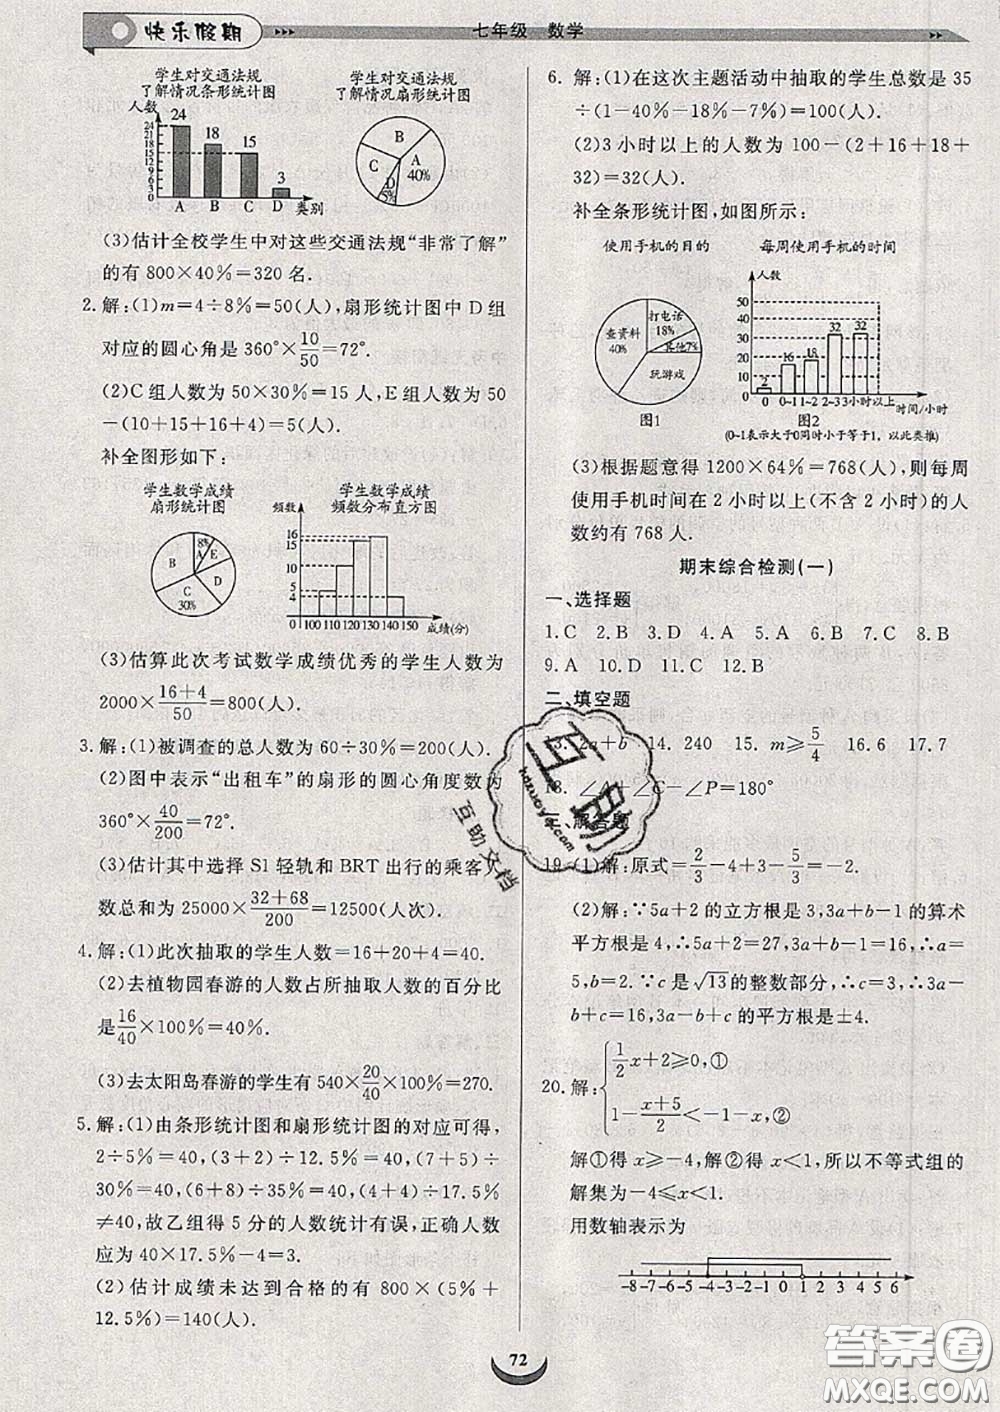 快乐假期
七年级 数学
学生对交通法规
了解情况条形统计图
人数
24
21
18
15
12
9
6
3
0
24
18
15
3
A B C D 类别
学生对交通法规
了解情况扇形统计图
B
C
A
40%
D
5%
(3)估计全校学生中对这些交通法规“非常了解”
的有 800×40%=320 名.
2.解:(1)m=4÷8%=50(人),扇形统计图中 D 组
对应的圆心角是 360°×10/50=72°.
(2)C 组人数为 50×30%=15 人,E 组人数为 50
-(10+15+16+4)=5(人).
补全图形如下:
学生数学成绩
扇形统计图
8%
A
E
B
D
C
30%
学生数学成绩
频数分布直方图
频数
16
15
10
5
4
0 100 110 120 130 140 150 成绩(分)
(3)估算此次考试数学成绩优秀的学生人数为
2000×(16+4)/50=800(人).
3.解:(1)被调查的总人数为 60÷30%=200(人).
(2)图中表示“出租车”的扇形的圆心角度数为
360°×40/200=72°.
(3)估计其中选择 S1 轻轨和 BRT 出行的乘客人
数总和为 25000×(32+68)/200=12500(人次).
4.解:(1)此次抽取的学生人数=16+20+4=40.
(2)去植物园春游的人数占所抽取人数的百分比
是16/40×100%=40%.
(3)去太阳岛春游的学生有 540×20/40×100%=270.
5.解:(1)由条形统计图和扇形统计图的对应可得,
2÷5%=40,(3+2)÷12.5%=40,(7+5)÷
30%=40,(6+8)÷35%=40,(4+4)÷17.5%
≠40,故乙组得 5 分的人数统计有误,正确人数
应为 40×17.5%-4=3.
(2)估计成绩未达到合格的有 800×(5%+
12.5%)=140(人).
6.解:(1)在这次主题活动中抽取的学生总数是 35
÷(1-40%-18%-7%)=100(人).
(2)3 小时以上的人数为 100-(2+16+18+
32)=32(人).
补全条形统计图,如图所示:
使用手机的目的
查资料
40%
打电话
18%
其他7%
玩游戏
图1
每周使用手机的时间
人数
50
40
30
20
10
0
2
16
18
32
32
0 0~1 1~2 2~3 3小时以上 时间/小时
图2
(0~1表示大于0同时小于等于1,以此类推)
(3)根据题意得 1200×64%=768(人),则每周
使用手机时间在 2 小时以上(不含 2 小时)的人
数约有 768 人.
期末综合检测(一)
一、选择题
1.C 2.B 3.D 4.A 5.A 6.B 7.C 8.B
9.A 10.D 11.C 12.B
二、填空题
13. 2a+b 14. 240 15. m≥5/4 16.6 17.7
18. ∠A+∠C-∠P=180°
三、解答题
19.(1)解:原式=2/3-4+3-5/3=-2.
(2)解:∵5a+2 的立方根是 3,3a+b-1 的算术
平方根是 4,∴5a+2=27,3a+b-1=16,∴a=
5,b=2.∵c 是√13的整数部分,∴c=3,∴3a-
b+c=16,3a-b+c 的平方根是±4.
20.解:{1/2x+2≥0,①
1-(x+5)/2<-x,②
解①得 x≥-4,解②得 x<1,所以不等式组的
解集为-4≤x<1.
用数轴表示为
-8 -7 -6 -5 -4 -3 -2 -1 0 1 2 3 4 5 6
72
互助文档
答案圈
MXQE.COM